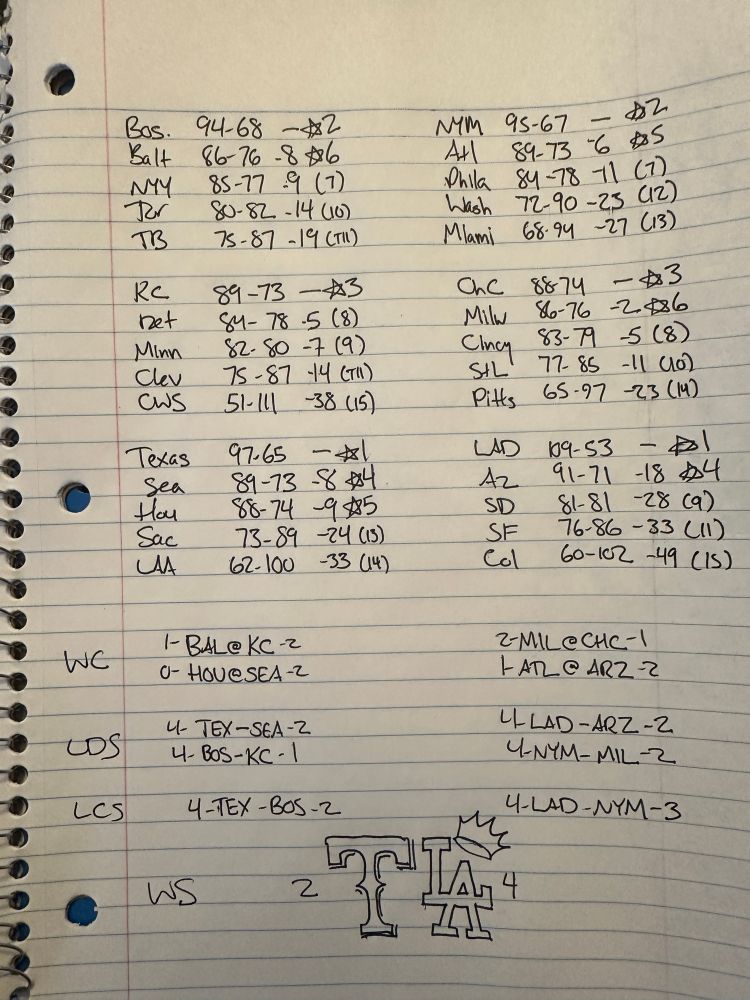 Bos. 94-68 — ☆2
Balt 86-76 -8 ☆6
NYY 85-77 -9 (7)
Tor 80-82 -14 (10)
TB 75-87 -19 (T11)
KC 89-73 — ☆3
Det 84-78 -5 (8)
Minn 82-80 -7 (9)
Clev 75-87 -14 (T11)
CWS 51-111 -38 (15)
Texas 97-65 — ☆1
Sea 89-73 -8 ☆4
Hou 88-74 -9 ☆5
Sac 73-89 -24 (13)
LAA 62-100 -33 (14)
NYM 95-67 — ☆2
Atl 89-73 -6 ☆5
Phila 84-78 -11 (7)
Wash 72-90 -23 (12)
Miami 68-94 -27 (13)
ChC 88-74 — ☆3
Milw 86-76 -2 ☆6
Cincy 83-79 -5 (8)
StL 77-85 -11 (10)
Pitts 65-97 -23 (14)
LAD 109-53 — ☆1
Az 91-71 -18 ☆4
SD 81-81 -28 (9)
SF 76-86 -33 (11)
Col 60-102 -49 (15)
WC
1-BAL@KC-2
0-HOU@SEA-2
2-MIL@CHC-1
1-ATL@ARZ-2
LDS
4-TEX-SEA-2
4-BOS-KC-1
4-LAD-ARZ-2
4-NYM-MIL-2
LCS
4-TEX-BOS-2
4-LAD-NYM-3
WS 2 T LA 4